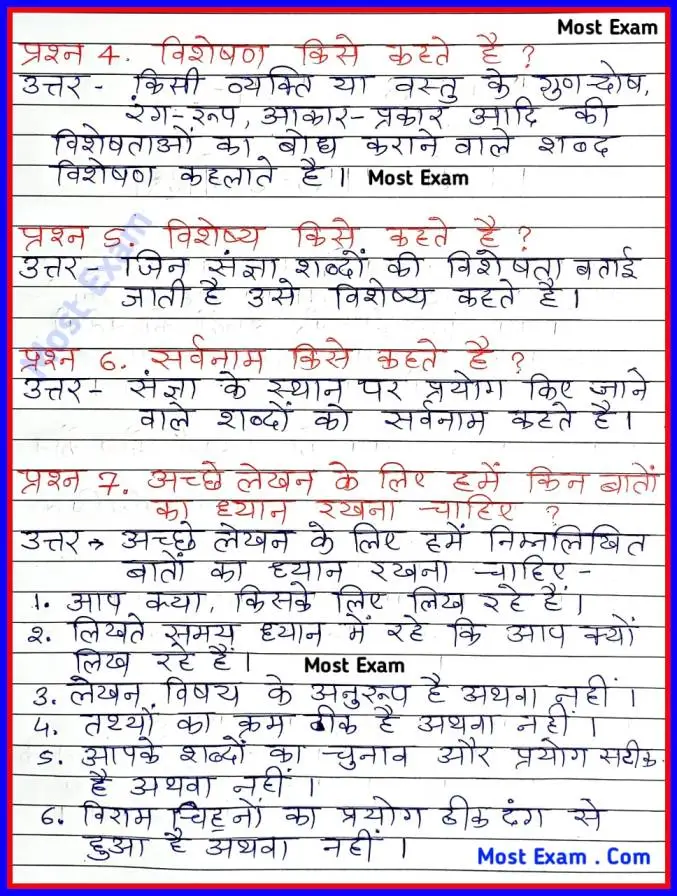 Most Exam
प्रश्न 4. विशेषण किसे कहते है ?
उत्तर - किसी व्यक्ति या वस्तु के गुण-दोष,
रंग-रूप, आकार-प्रकार आदि की
विशेषताओं का बोध कराने वाले शब्द
विशेषण कहलाते है । Most Exam
प्रश्न 5. विशेष्य किसे कहते है ?
उत्तर - जिन संज्ञा शब्दों की विशेषता बताई
जाती है उसे विशेष्य कहते है ।
Most Exam
प्रश्न 6. सर्वनाम किसे कहते है ?
उत्तर - संज्ञा के स्थान पर प्रयोग किए जाने
वाले शब्दों को सर्वनाम कहते है ।
प्रश्न 7. अच्छे लेखन के लिए हमें किन बातों
का ध्यान रखना चाहिए ?
उत्तर → अच्छे लेखन के लिए हमें निम्नलिखित
बातों का ध्यान रखना चाहिए -
1. आप क्या, किसके लिए लिख रहे हैं ।
2. लिखते समय ध्यान में रहे कि आप क्यों
लिख रहे हैं । Most Exam
3. लेखन विषय के अनुरूप है अथवा नहीं ।
4. तथ्यों का क्रम ठीक है अथवा नहीं ।
5. आपके शब्दों का चुनाव और प्रयोग सटीक
है अथवा नहीं ।
6. विराम चिह्नों का प्रयोग ठीक ढंग से
हुआ है अथवा नहीं ।
Most Exam . Com